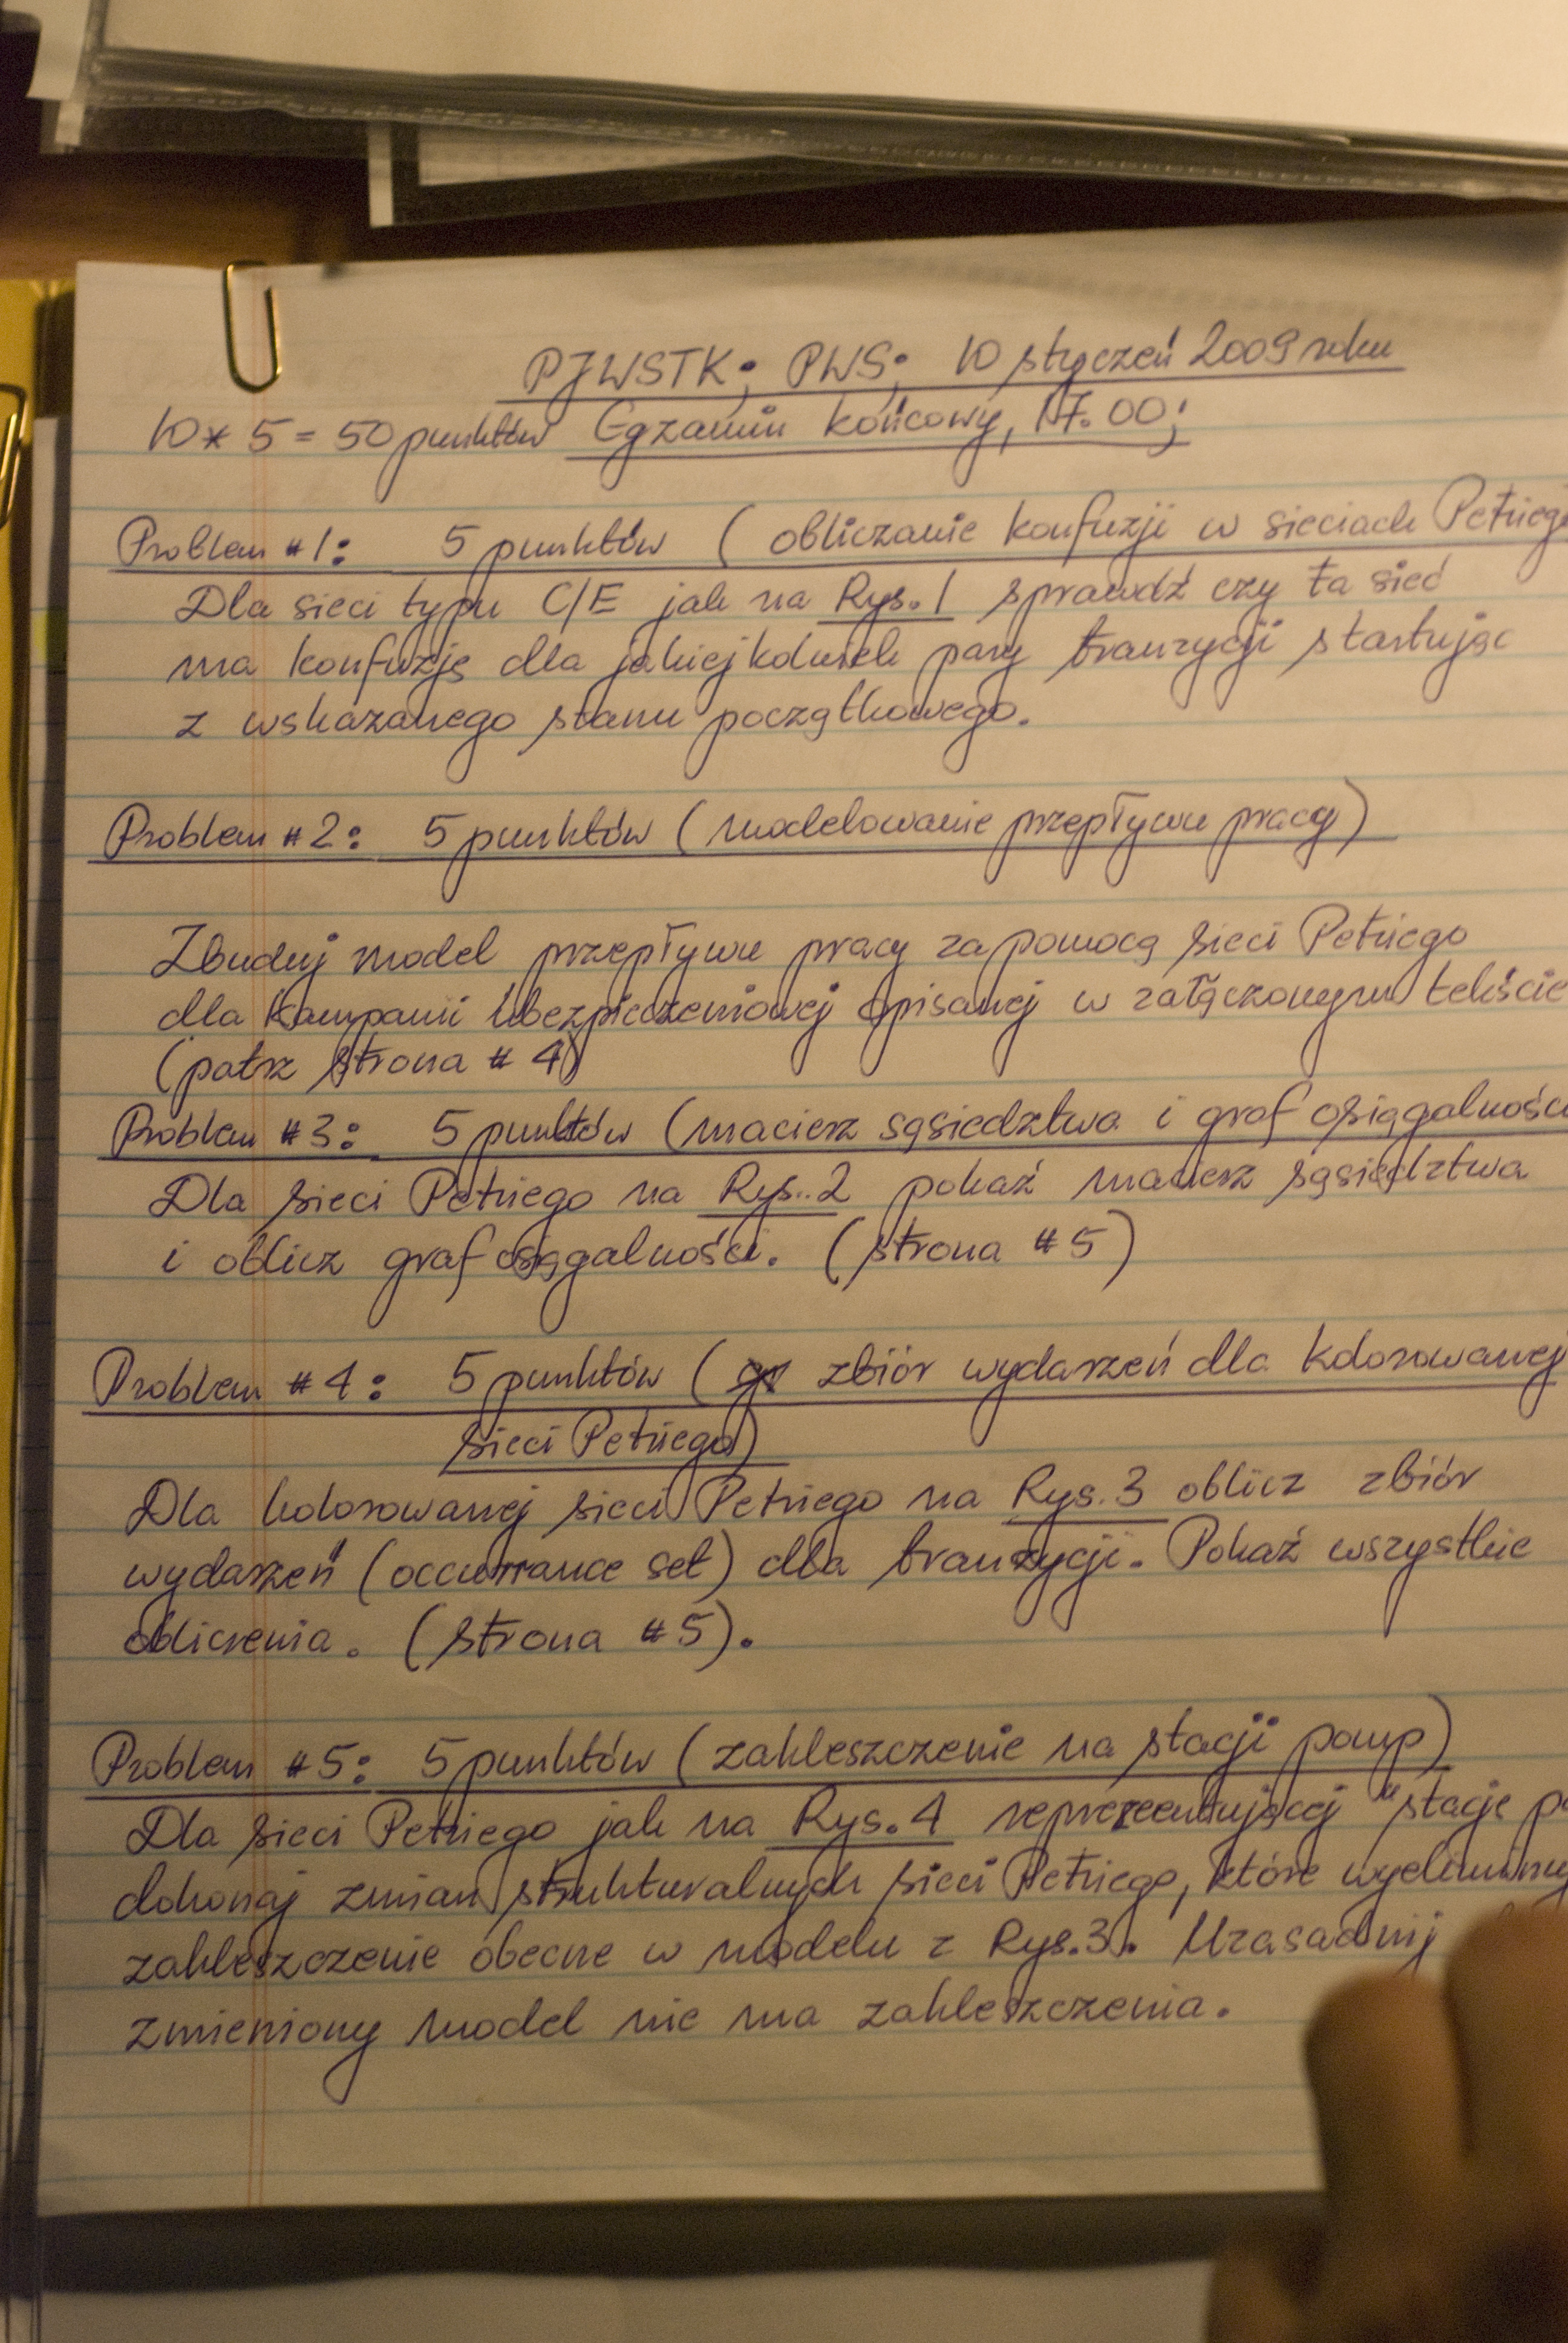 PJWSTK; PWS; 10 styczeń 2009 roku
10 * 5 = 50 punktów Egzamin końcowy, 17.00;
Problem #1: 5 punktów (obliczanie konfuzji w sieciach Petriego
Dla sieci typu C/E jak na Rys.1 sprawdź czy ta sieć
ma konfuzję dla jakiejkolwiek pary tranzycji startując
z wskazanego stanu początkowego.
Problem #2: 5 punktów (modelowanie przepływu pracy)
Zbuduj model przepływu pracy za pomocą sieci Petriego
dla Kampanii Ubezpieczeniowej opisanej w załączonym tekście
(patrz strona # 4)
Problem #3: 5 punktów (macierz sąsiedztwa i graf osiągalności
Dla sieci Petriego na Rys.2 pokaż macierz sąsiedztwa
i oblicz graf osiągalności. (strona #5)
Problem #4: 5 punktów (zbiór wydarzeń dla kolorowanej
sieci Petriego)
Dla kolorowanej sieci Petriego na Rys.3 oblicz zbiór
wydarzeń (occurrance set) dla tranzycji. Pokaż wszystkie
obliczenia. (strona #5).
Problem #5: 5 punktów (zakleszczenie na stacji pomp)
Dla sieci Petriego jak na Rys.4 reprezentującej "stację
dokonaj zmian strukturalnych sieci Petriego, które
zakleszczenie obecne w modelu z Rys.3. Uzasadnij
zmieniony model nie ma zakleszczenia.